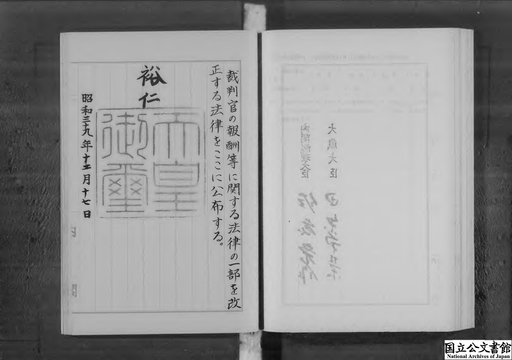 裁判官の報酬等に関する法律の一部を改
正する法律をここに公布する。
裕仁
天皇
御璽
昭和三十九年十二月十七日
大蔵大臣
内閣総理大臣
国立公文書館
National Archives of Japan